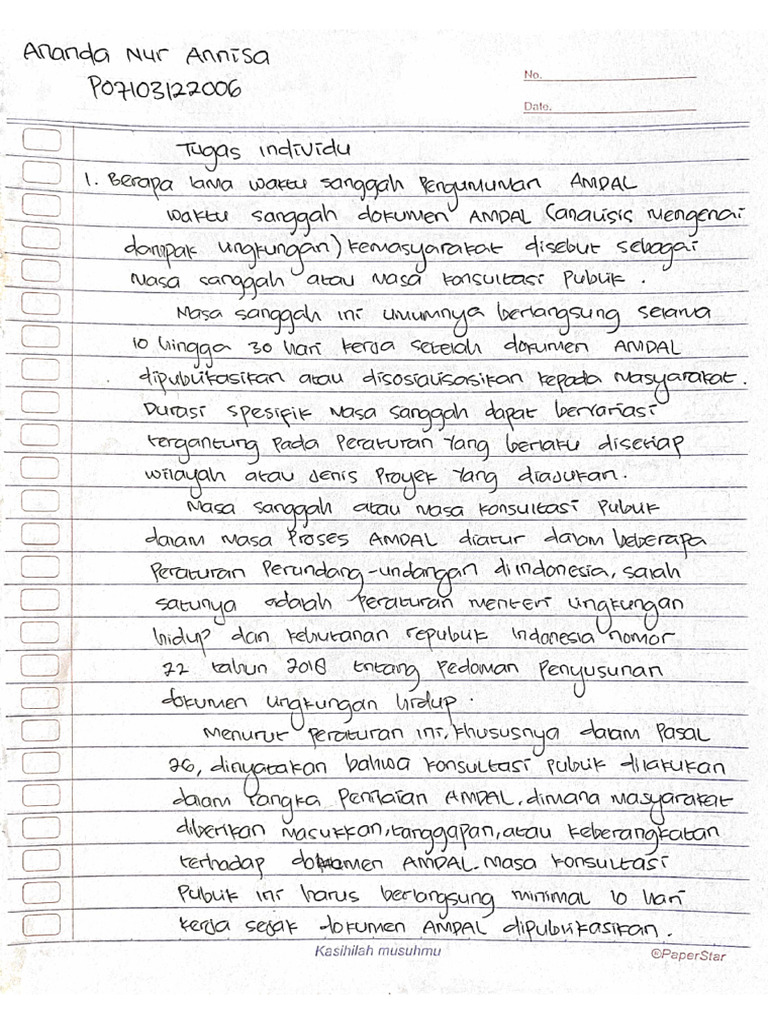 Ananda Nur Annisa
P07103122006
No.
Date.
Tugas individu
1. Berapa lama waktu sanggah Pengumuman AMDAL
waktu sanggah dokumen AMDAL (analisis mengenai
dampak lingkungan) kemasyarakat disebut sebagai
Masa sanggah atau Masa konsultasi Publik.
Masa sanggah ini umumnya berlangsung selama
10 hingga 30 hari kerja setelah dokumen AMDAL
dipublikasikan atau disosialisasikan kepada Masyarakat.
Durasi spesifik Masa sanggah dapat bervariasi
tergantung pada Peraturan yang berlaku disetiap
wilayah atau Jenis Proyek yang diajukan.
Masa sanggah atau Masa konsultasi Publik
dalam Masa Proses AMDAL diatur dalam beberapa
Peraturan Perundang-undangan di indonesia, salah
satunya adalah Peraturan menteri lingkungan
hidup dan kehutanan republik Indonesia nomor
22 tahun 2018 tntang Pedoman Penyusunan
dokumen lingkungan hidup.
Menurut Peraturan ini, khususnya dalam Pasal
26, dinyatakan bahwa konsultasi publik dilakukan
dalam rangka Penilaian AMDAL, dimana masyarakat
diberikan masukkan, tanggapan, atau keberangkatan
terhadap dokumen AMDAL. Masa konsultasi
Publik ini harus berlangsung minimal 10 hari
kerja sejak dokumen AMDAL dipublikasikan.
Kasihilah musuhmu
©PaperStar